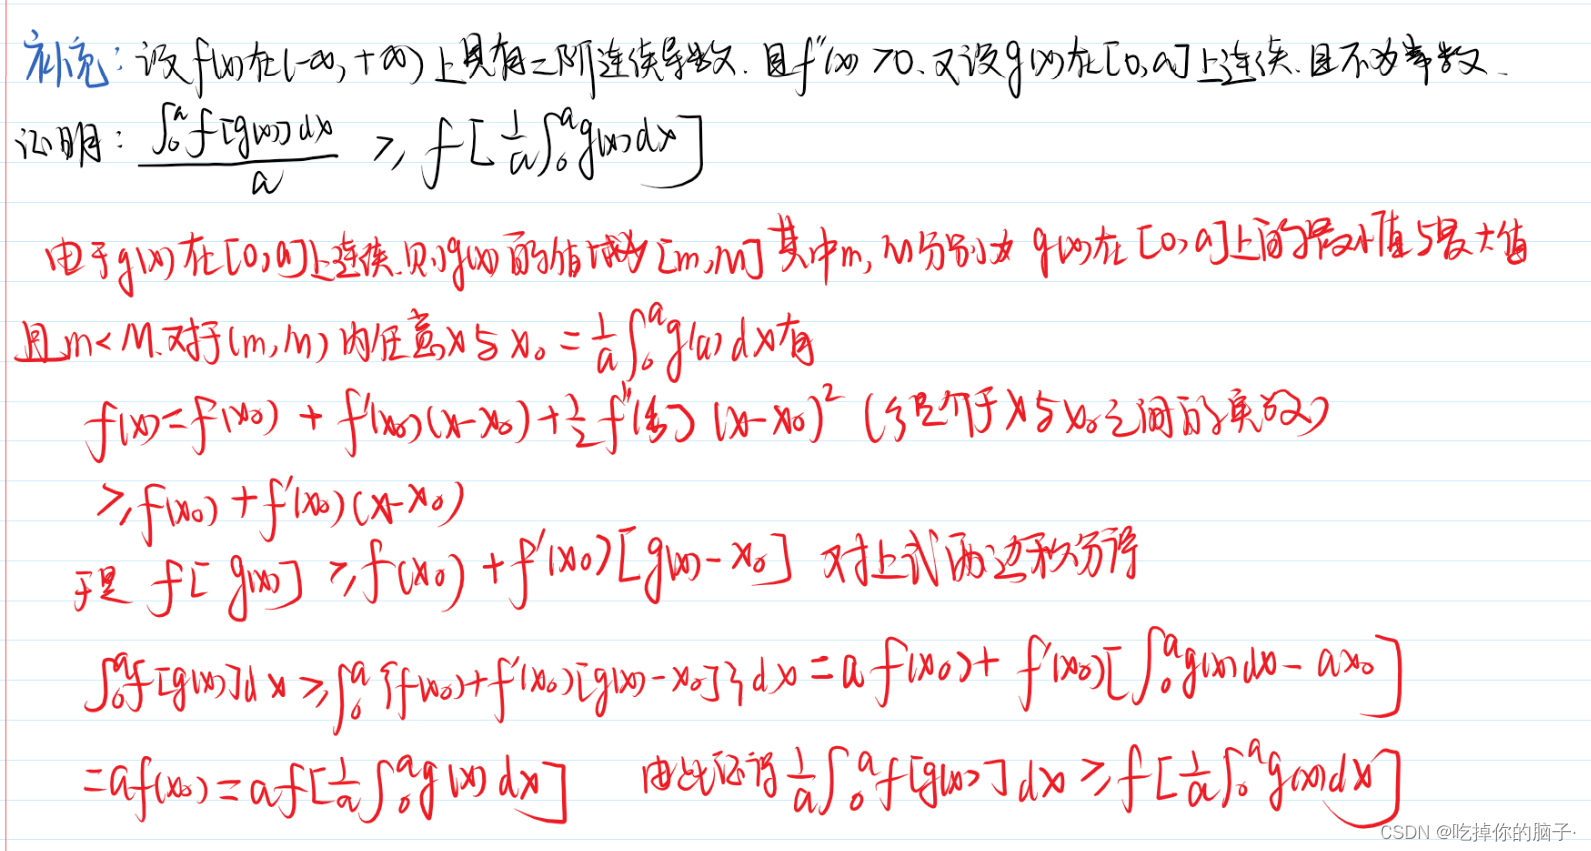 补充：设f(x)在(-∞,+∞)上具有二阶连续导数.且f''(x)≥0.又设g(x)在[0,a]上连续.且不为常数.
证明：∫₀ᵃf[g(x)]dx / a ≥ f[1/a ∫₀ᵃg(x)dx]
由于g(x)在[0,a]上连续.则g(x)的值域为[m,M]其中m,M分别为g(x)在[0,a]上的最小值与最大值
且m<M.对于(m,M)内任意x与x₀=1/a ∫₀ᵃg(a)dx有
f(x)=f(x₀)+f'(x₀)(x-x₀)+1/2 f''(ξ)(x-x₀)²(ξ是介于x与x₀之间的实数)
≥f(x₀)+f'(x₀)(x-x₀)
于是 f[g(x)]≥f(x₀)+f'(x₀)[g(x)-x₀] 对上式两边积分得
∫₀ᵃf[g(x)]dx≥∫₀ᵃ{f(x₀)+f'(x₀)[g(x)-x₀]}dx=af(x₀)+f'(x₀)[∫₀ᵃg(x)dx-ax₀]
=af(x₀)=af[1/a ∫₀ᵃg(x)dx] 由此证得1/a ∫₀ᵃf[g(x)]dx≥f[1/a ∫₀ᵃg(x)dx]
CSDN @吃掉你的脑子·